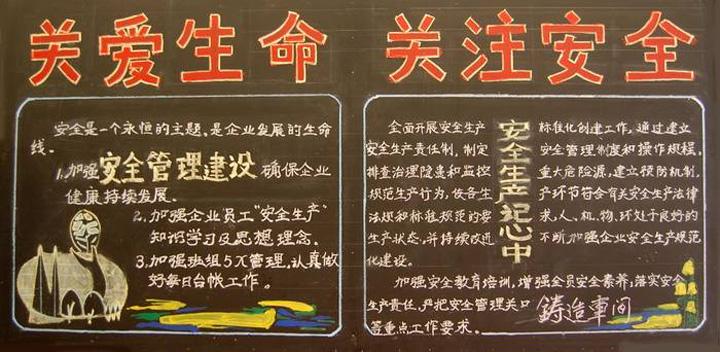 关爱生命 关注安全
安全是一个永恒的主题,是企业发展的生命
线。
1.加强安全管理建设 确保企业
健康持续发展。
2.加强企业员工“安全生产”
知识学习及思想理念。
3.加强班组5S管理,认真做
好每日台帐工作。
全面开展安全生产
安全生产责任制,制定
排查治理隐患和监控
规范生产行为,使各生
法规和标准规范的要
生产状态,并持续改进
化建设。
安全生产记心中
标准化创建工作,通过建立
安全管理制度和操作规程,
重大危险源,建立预防机制,
产环节符合有关安全生产法律
求,人、机、物、环处于良好的
不断加强企业安全生产规范
加强安全教育培训,增强全员安全素养,落实安全
生产责任,严把安全管理关口
署重点工作要求。
铸造车间